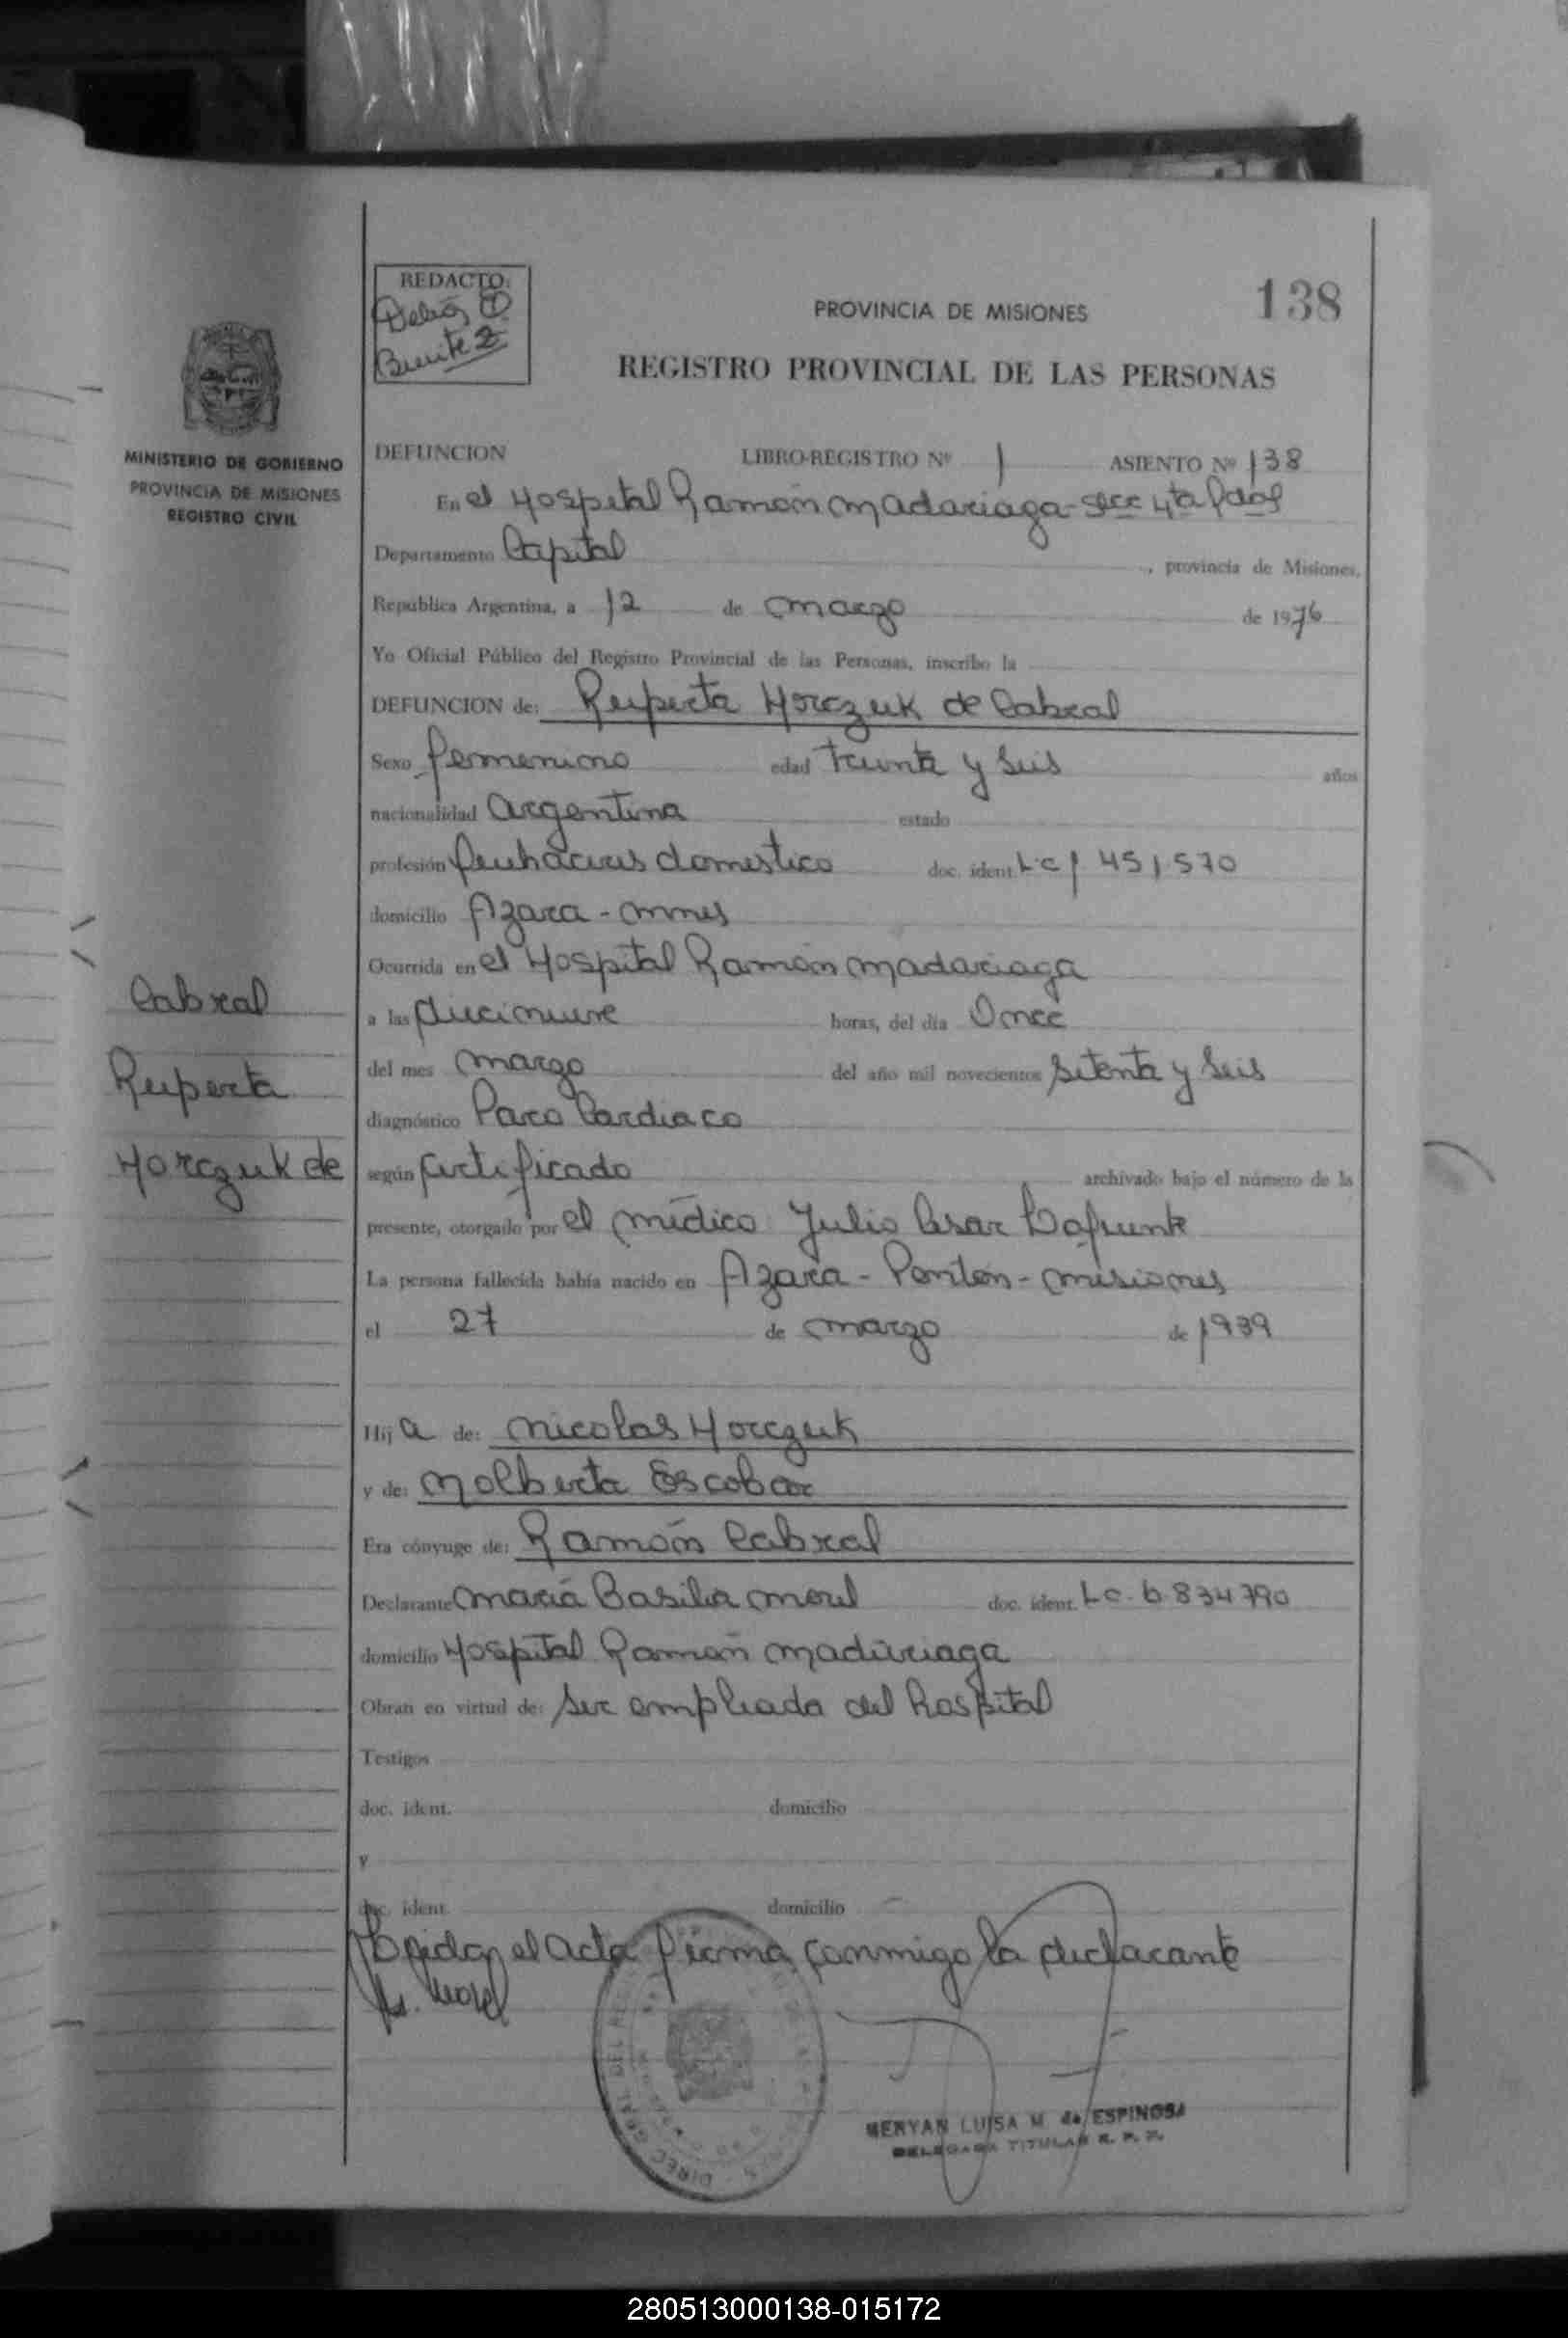 138
REDACTO:
PROVINCIA DE MISIONES
REGISTRO PROVINCIAL DE LAS PERSONAS
MINISTERIO DE GOBIERNO
PROVINCIA DE MISIONES
REGISTRO CIVIL
DEFUNCION LIBRO-REGISTRO Nº 1 ASIENTO Nº 138
En el Hospital Ramón Madariaga - Secc 4ta Pdas
Departamento Capital, provincia de Misiones,
República Argentina, a 12 de marzo de 1976
Yo Oficial Público del Registro Provincial de las Personas, inscribo la
DEFUNCION de: Ruperta Horczuk de Cabral
Sexo femenino edad treinta y seis años
nacionalidad argentina estado
profesión quehaceres domestico doc. ident. L.C 1.451.570
domicilio Azara - Mnes
Ocurrida en el Hospital Ramón Madariaga
a las diecinueve horas, del día Once
del mes marzo del año mil novecientos setenta y seis
diagnóstico Paro Cardiaco
según certificado archivado bajo el número de la
presente, otorgado por el médico Julio Cesar
La persona fallecida había nacido en Azara - - Misiones
el 27 de marzo de 1939
Hija de: Nicolas Horczuk
y de: Nolberta Escobar
Era cónyuge de: Ramón Cabral
Declarante María Basilia Morel doc. ident. L.C. 6.834.790
domicilio Hospital Ramón Madariaga
Obran en virtud de: ser empleada del hospital
Testigos
doc. ident. domicilio
y
doc. ident. domicilio
Leida el acta firma conmigo la declarante
M. Morel
MERYAN LUISA M. de ESPINOSA
DELEGADA TITULAR R. P. P.
Cabral
Ruperta
Horczuk de
280513000138-015172